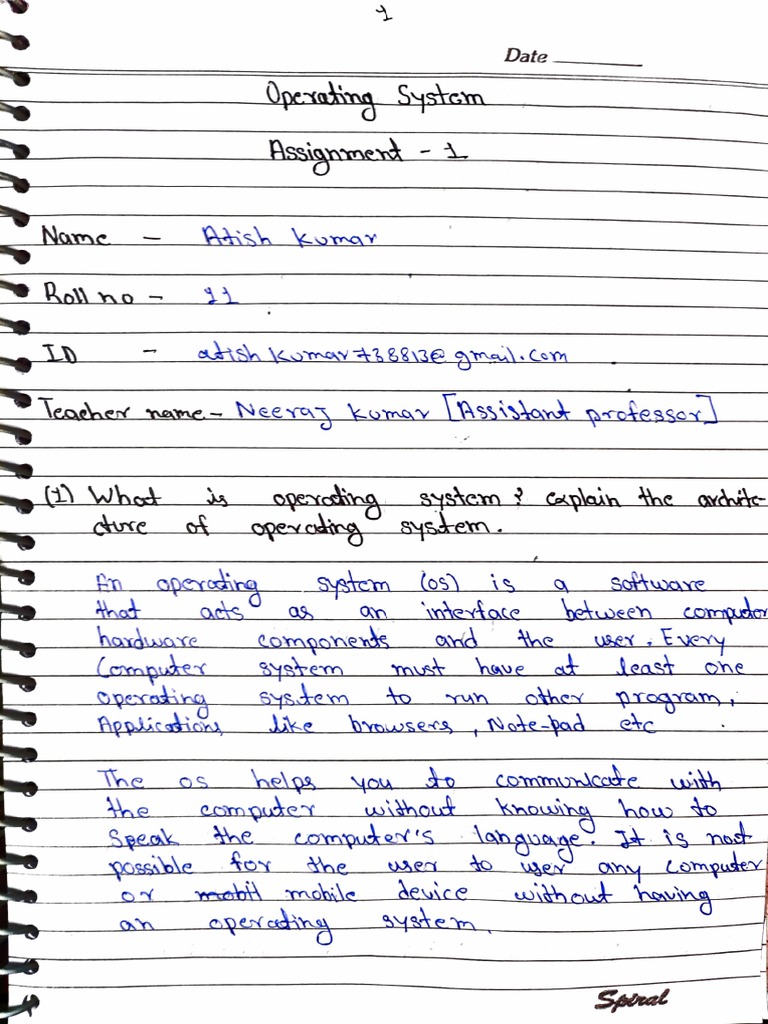 1
Date
Operating System
Assignment - 1
Name - Atish Kumar
Roll no - 11
ID - atishkumar738813@gmail.com
Teacher name - Neeraj Kumar [Assistant professor]
(1) What is operating system? explain the archite-
cture of operating system.
An operating system (os) is a software
that acts as an interface between computer
hardware components and the user. Every
Computer system must have at least one
operating system to run other program,
Applications like browsers, Note-pad etc
The os helps you to communicate with
the computer without knowing how to
Speak the computer's language. It is not
possible for the user to user any computer
or mobil mobile device without having
an operating system.
Spiral